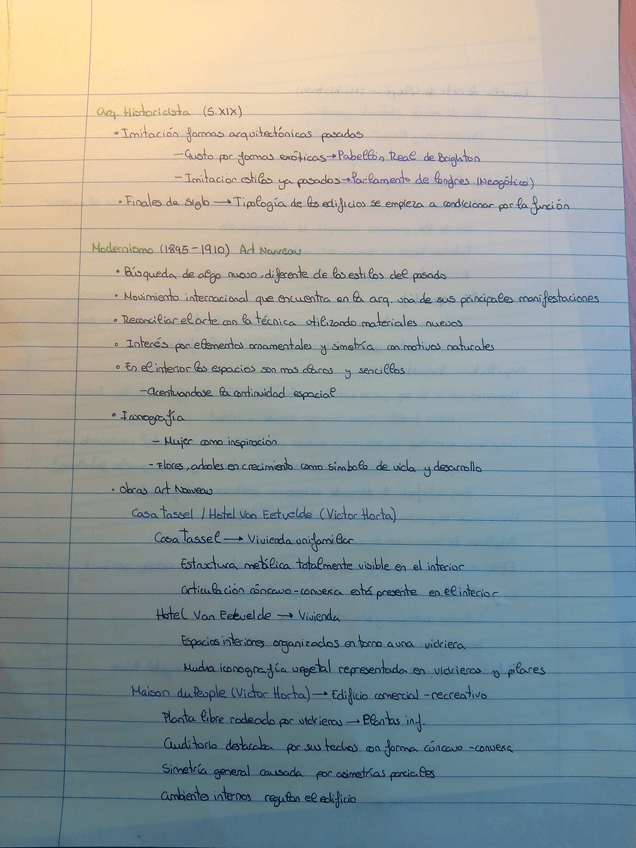 Arq. Historicista (S.XIX)
• Imitación formas arquitectónicas pasadas
— Gusto por formas exóticas → Pabellón Real de Brighton
— Imitación estilos ya pasados → Parlamento de Londres (Neogótico)
• Finales de siglo → Tipología de los edificios se empieza a condicionar por la función
Modernismo (1895-1910) Art Nouveau
• Búsqueda de algo nuevo, diferente de los estilos del pasado
• Movimiento internacional que encuentra en la arq. una de sus principales manifestaciones
• Reconciliar el arte con la técnica utilizando materiales nuevos
• Interés por elementos ornamentales y simetría con motivos naturales
• En el interior los espacios son mas claros y sencillos
- Acentuandose la continuidad espacial
• Iconografía
- Mujer como inspiración
- Flores, arboles en crecimiento como símbolo de vida y desarrollo
• Obras art Nouveau
Casa Tassel / Hotel Van Eetvelde (Victor Horta)
Casa Tassel → Vivienda unifamiliar
Estructura metálica totalmente visible en el interior
Articulación cóncavo-convexa está presente en el interior
Hotel Van Eetvelde → Vivienda
Espacios interiores organizados en torno a una vidriera
Mucha iconografía vegetal representada en vidrieras y pilares
Maison du People (Victor Horta) → Edificio comercial-recreativo
Planta libre rodeado por vidrieras → Plantas inf.
Auditorio destacaba por sus techos con forma cóncavo-convexa
Simetría general causada por asimetrías parciales
Ambientes internos regulan el edificio